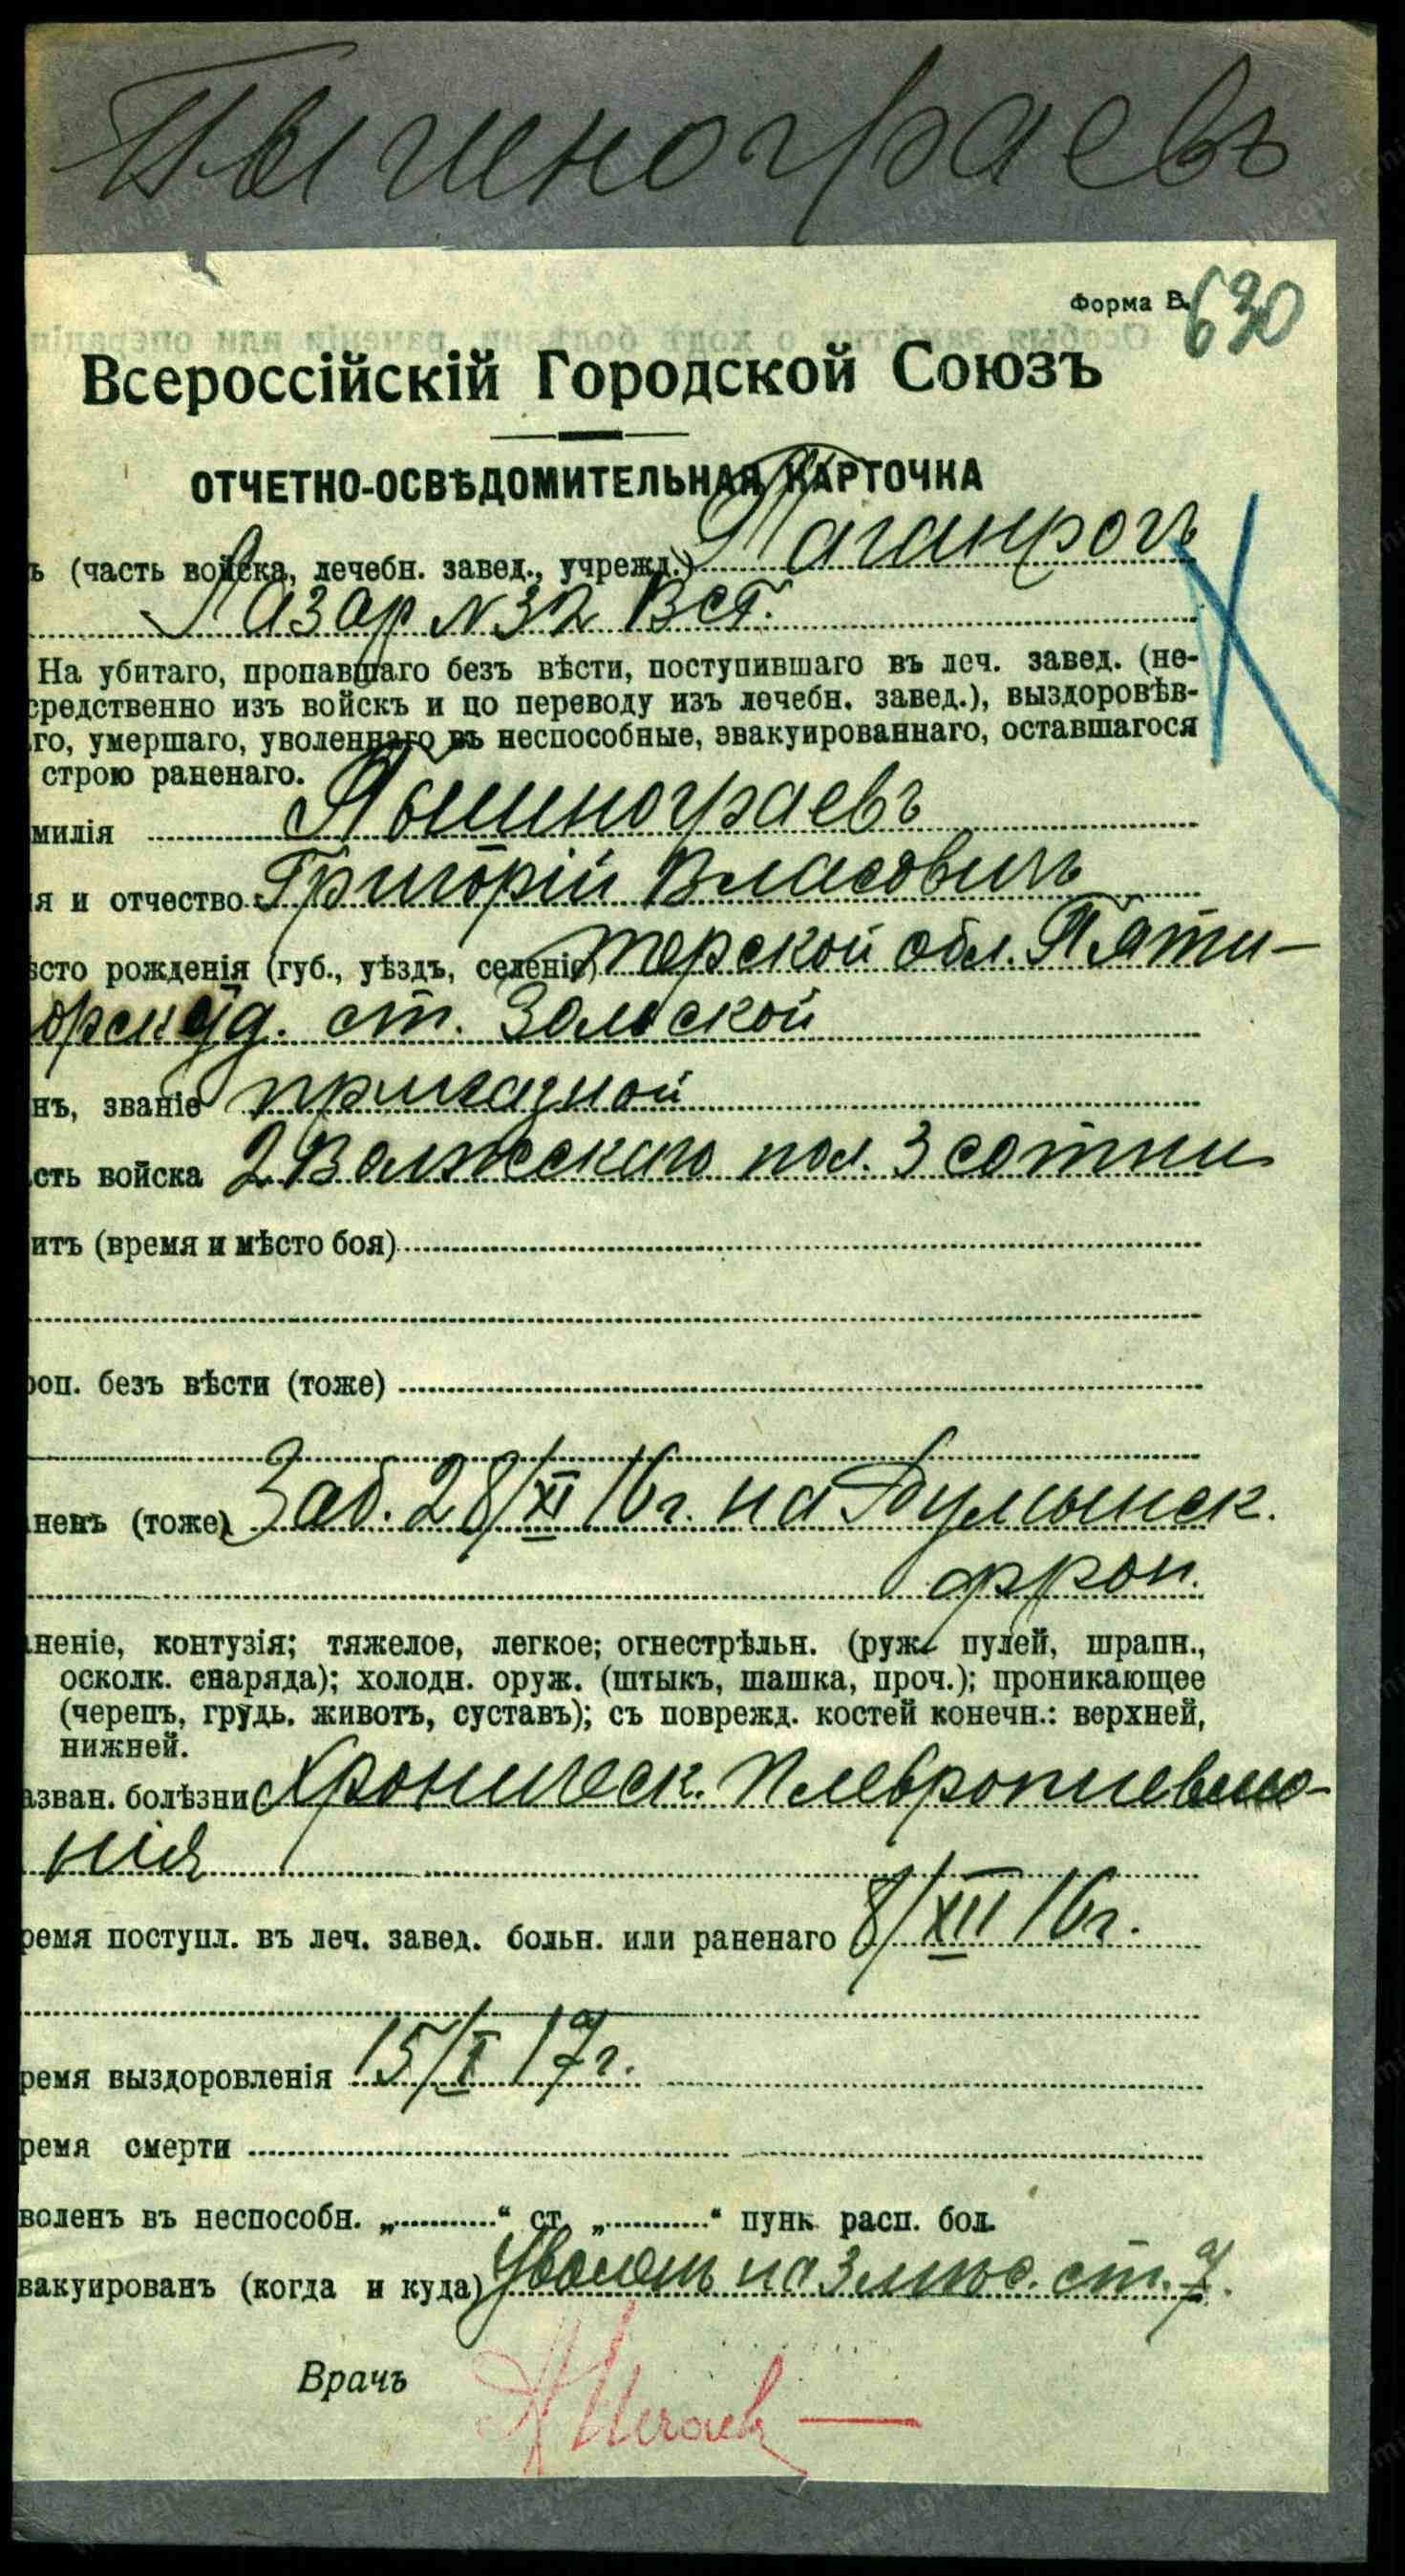 Пышнограевъ
Форма В.
630
Всероссійскій Городской Союзъ
ОТЧЕТНО-ОСВѢДОМИТЕЛЬНАЯ КАРТОЧКА
ъ (часть войска, лечебн. завед., учрежд.) Таганрогъ
Лазар № 32 ВСГ.
На убитаго, пропавшаго безъ вѣсти, поступившаго въ леч. завед. (не-
средственно изъ войскъ и по переводу изъ лечебн. завед.), выздоровѣв-
го, умершаго, уволеннаго въ неспособные, эвакуированнаго, оставшагося
строю раненаго.
милія Пышнограевъ
я и отчество Григорій Власовичъ
ѣсто рожденія (губ., уѣздъ, селеніе) Терской обл. Пяти-
горск отд. ст. Зольской
нъ, званіе приказной
сть войска 2 Волжскаго пол. 3 сотни
итъ (время и мѣсто боя)
роп. безъ вѣсти (тоже)
ненъ (тоже) Заб. 28/XI 16 г. на Румынск.
фрон.
неніе, контузія; тяжелое, легкое; огнестрѣльн. (руж. пулей, шрапн.,
осколк. снаряда); холодн. оруж. (штыкъ, шашка, проч.); проникающее
(черепъ, грудь, животъ, суставъ); съ поврежд. костей конечн.: верхней,
нижней.
азван. болѣзни Хроническ. Плевропневмо-
нія
ремя поступл. въ леч. завед. больн. или раненаго 8/XII 16 г.
ремя выздоровленія 15/I 17 г.
ремя смерти
воленъ въ неспособн. „ “ ст. „ “ пунк. расп. бол.
вакуированъ (когда и куда) Уволенъ на 3 мѣс. ст. 7.
Врачъ